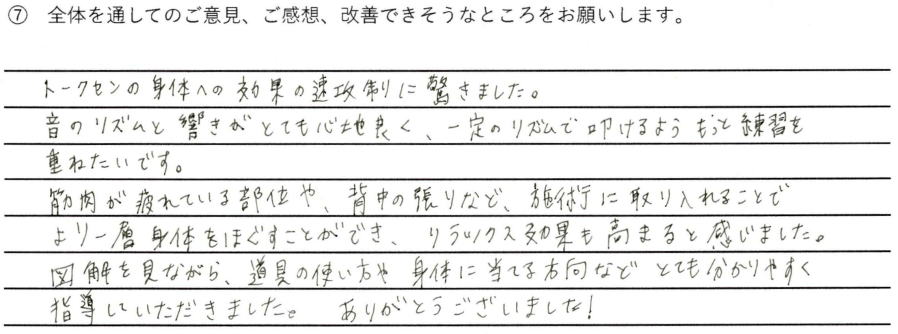 ⑦ 全体を通してのご意見、ご感想、改善できそうなところをお願いします。
トークセンの身体への効果の速攻制に驚きました。
音のリズムと響きがとても心地良く、一定のリズムで叩けるようもっと練習を
重ねたいです。
筋肉が疲れている部位や、背中の張りなど、施術に取り入れることで
より一層身体をほぐすことができ、リラックス効果も高まると感じました。
図解を見ながら、道具の使い方や身体に当てる方向などとても分かりやすく
指導していただきました。ありがとうございました!